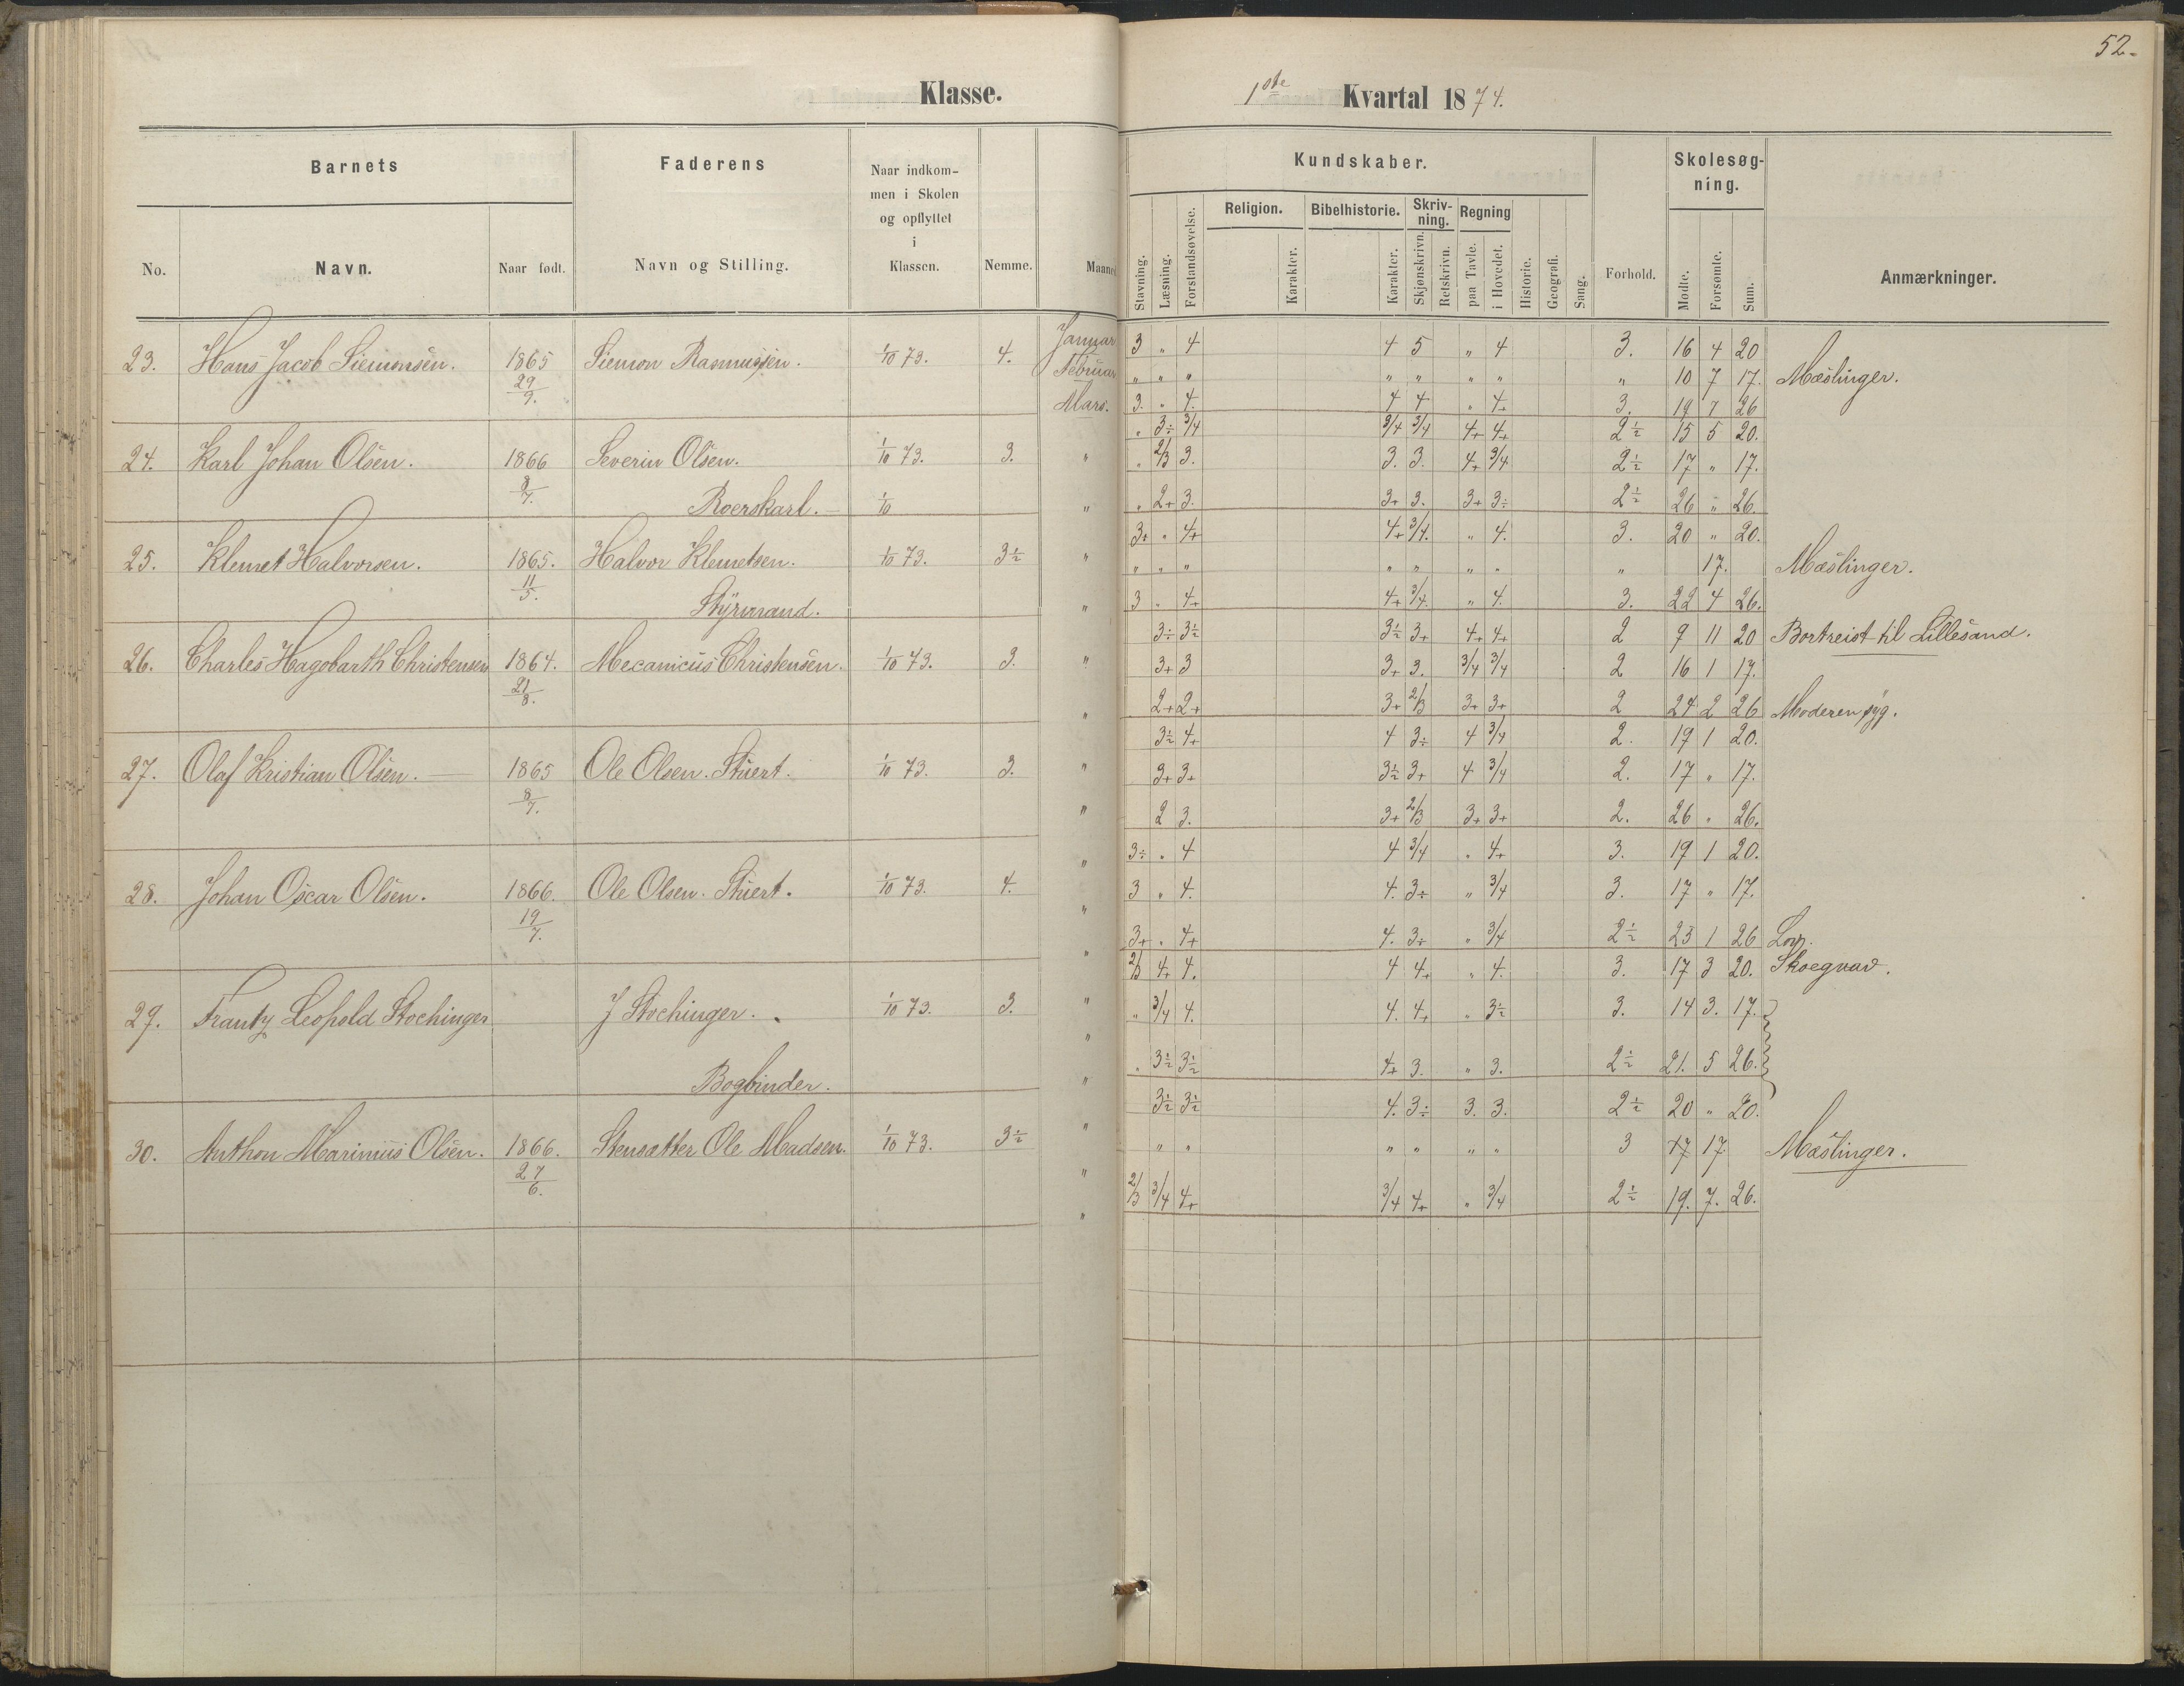 52.
Klasse.
1ste Kvartal 1874.
Barnets
Faderens
Naar indkom-
men i Skolen
og opflyttet
i
Klassen.
No.
Navn.
Naar født.
Navn og Stilling.
Nemme.
Maanet
Kundskaber.
Skolesøg-
ning.
Religion. Bibelhistorie. Skriv-
ning. Regning
Stavning. Læsning. Forstandsøvelse. Karakter. Karakter. Skjønskrivn. Retskrivn. paa Tavle. i Hovedet. Historie. Geografi. Sang. Forhold. Mødte. Forsømte. Sum. Anmærkninger.
23. Hans Jacob Siemonsen. 1865 29/9. Siemon Rasmussen. 1/10 73. 4.
Januar 3 " 4 4 5 " 4 3. 16 4 20
Februar " " " " " " " " 10 7 17. Mæslinger.
Mars. 3. " 4. 4 4 " 4+ 3. 19 7 26
24. Karl Johan Olsen. 1866 Severin Olsen. 1/10 73. 3.
Roerskarl. 1/10
" 3÷ 3/4 3/4 3/4 4+ 4+ 2½ 15 5 20.
" 2/3 3. 3. 3. 4+ 3/4 2½ 17 " 17.
" 2+ 3. 3+ 3. 3+ 3÷ 2½ 26 " 26.
25. Klemet Halvorsen. 1865. 11/5. Halvor Klemetsen. 1/10 73. 3½
Styrmand.
3+ " 4+ 4+ 3/4. " 4. 3. 20 " 20.
" " " " " " " " 17. Mæslinger.
3 " 4+ 4+ 3/4. " 4. 3. 22 4 26.
26. Charles Hagobarth Christensen 1864. 21/8. Mecanicus Christensen. 1/10 73. 3.
3÷ 3½ 3½ 3+ 4+ 4+ 2 9 11 20 Bortreist til Lillesand.
3+ 3 3+ 3. 3/4 3/4 2 16 1 17.
2+ 2+ 3+ 2/3 3+ 3+ 2 24 2 26 Moderen syg.
27. Olaf Kristian Olsen. 1865 8/7. Ole Olsen. Stuert. 1/10 73. 3.
3½ 4+ 4 3÷ 4 3/4 2. 19 1 20.
3+ 3+ 3½ 3+ 4 3/4 2. 17 " 17.
2 3. 3+ 2/3 3+ 3+ 2. 26 " 26.
28. Johan Oscar Olsen. 1866. 19/7. Ole Olsen. Stuert. 1/10 73. 4.
3÷ " 4 4 3/4 " 4+ 3. 19 1 20.
3 " 4. 4. 3÷ " 3/4 3. 17 " 17.
3+ " 4+ 4. 3+ " 3/4 2½ 25 1 26 Lov.
29. Frantz Leopold Stochinger J Stochinger. 1/10 73. 3.
Bogbinder.
2/3 4+ 4. 4 4+ " 4. 3. 17 3 20. Skoegnad.
" 3/4 4. 4. 4+ " 3½ 3. 14 3. 17.
" 3½ 3½ 4+ 3. " 3. 2½ 21. 5 26.
30. Anthon Marinius Olsen. 1866. 27/6. Stensætter Ole Madsen. 1/10 73. 3½
3½ 3½ 4. 3÷ 3. 3. 2½ 20 " 20.
" " " " " " 3 17 17 Mæslinger.
2/3 3/4 4+ 3/4 4+ " 3/4 2½ 19. 7. 26.